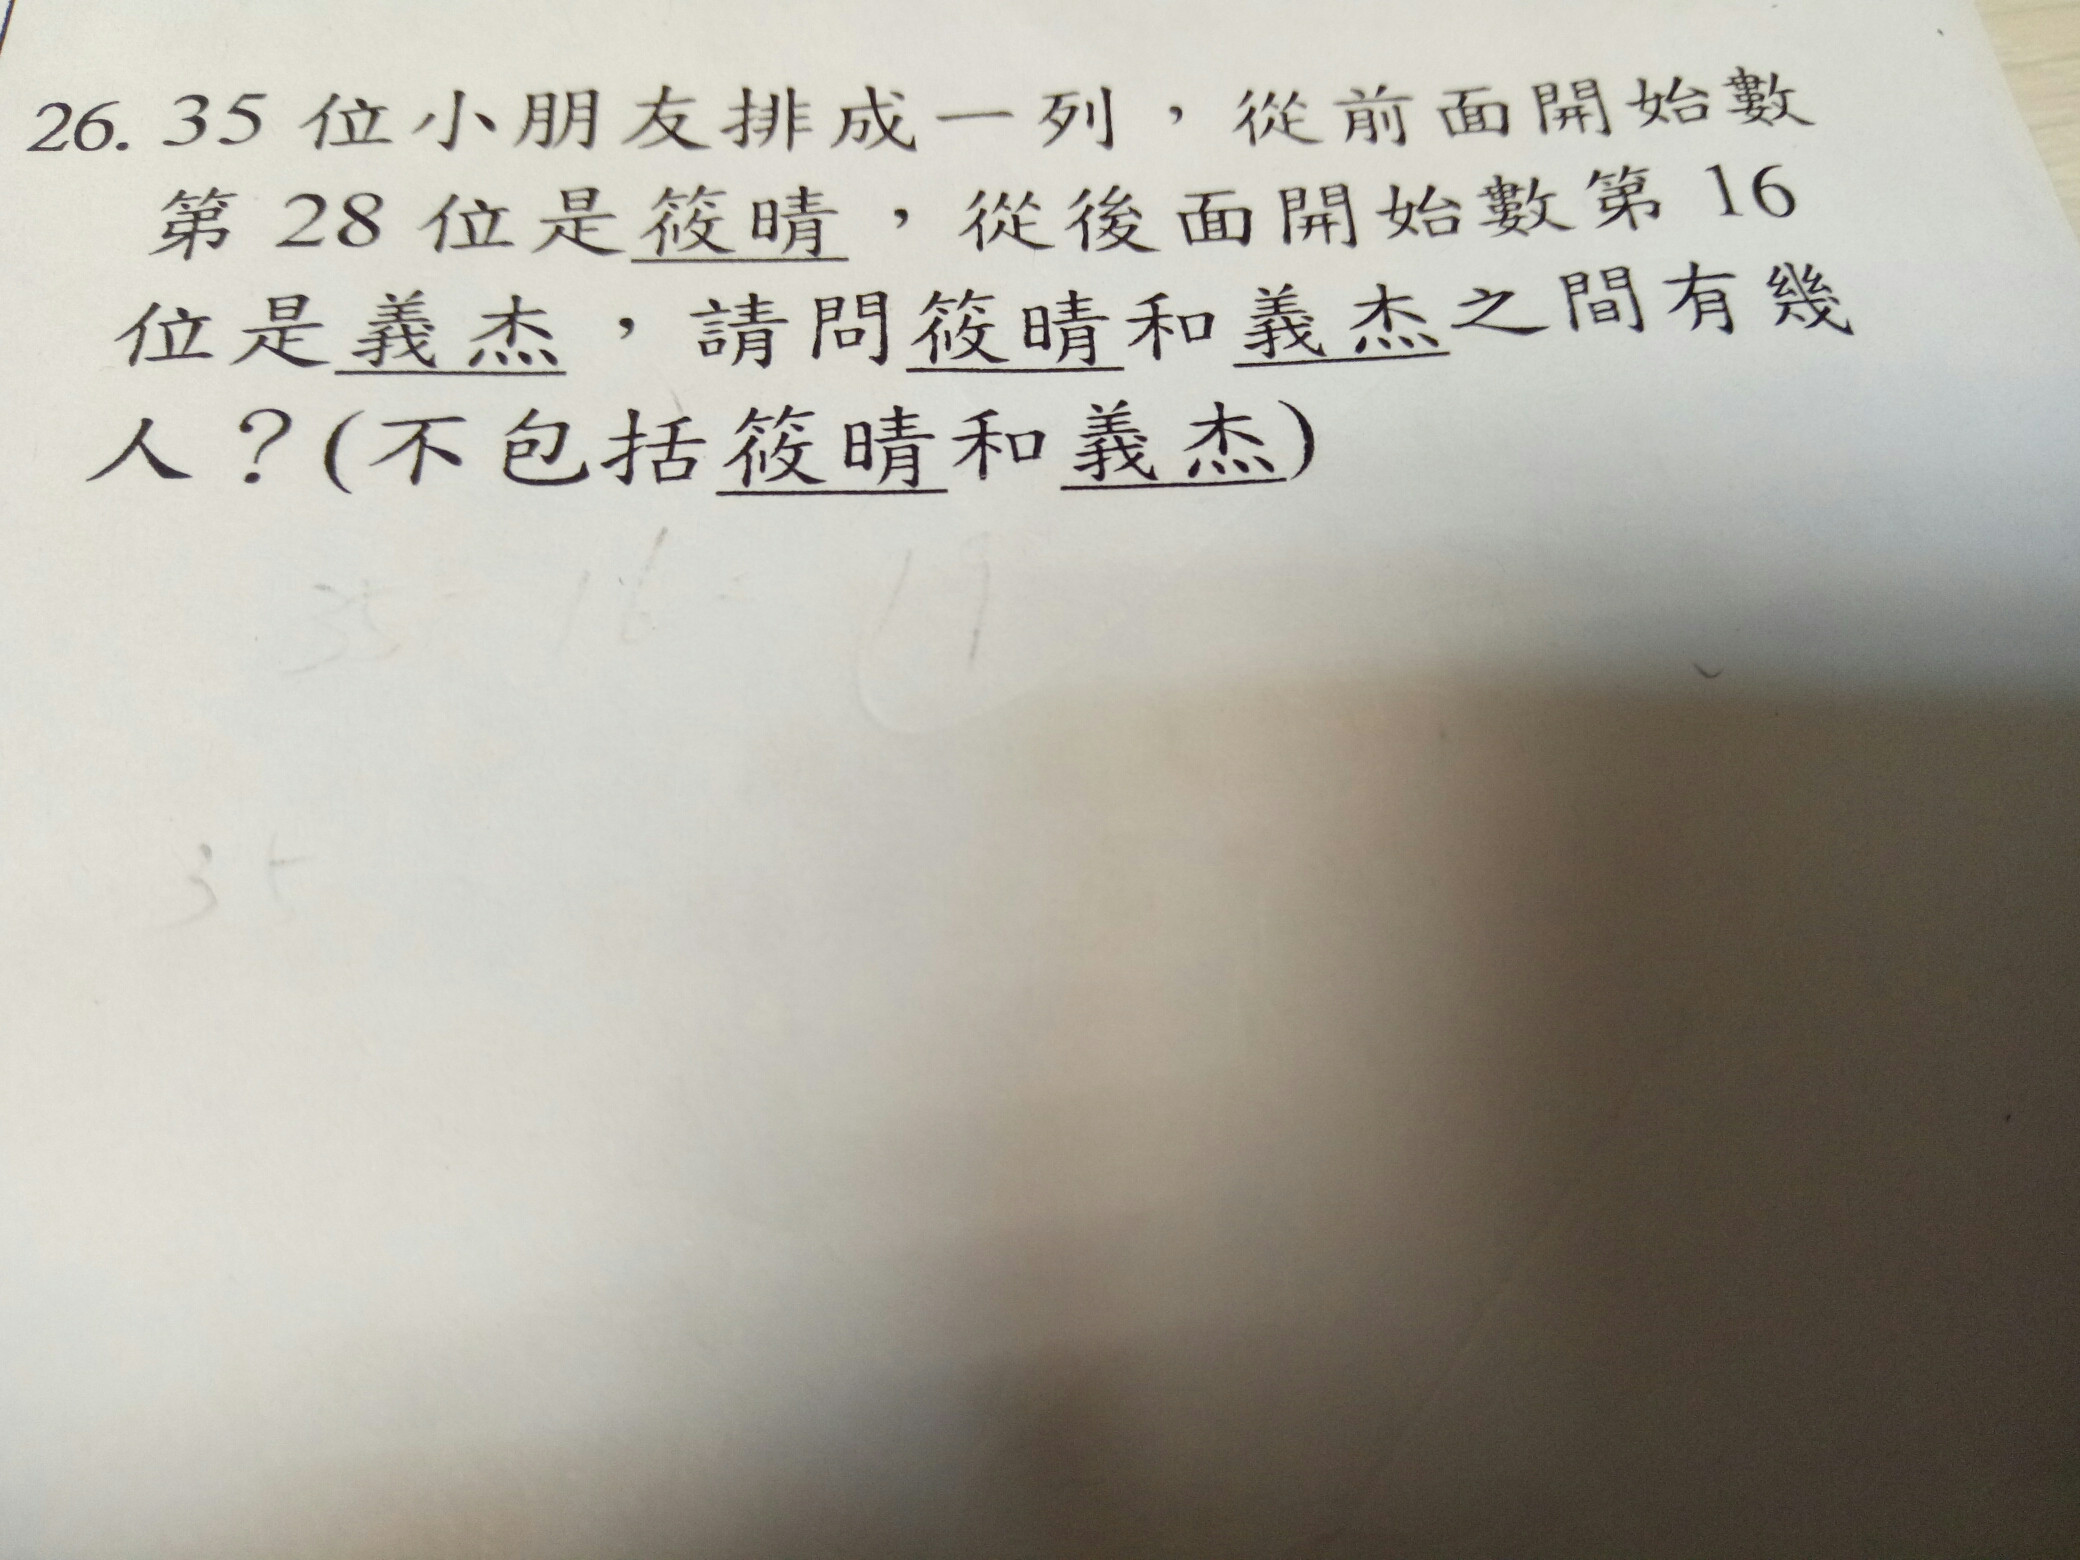 26. 35 位小朋友排成一列，從前面開始數
第 28 位是筱晴，從後面開始數第 16
位是義杰，請問筱晴和義杰之間有幾
人？(不包括筱晴和義杰)
35 - 16 = 19
35